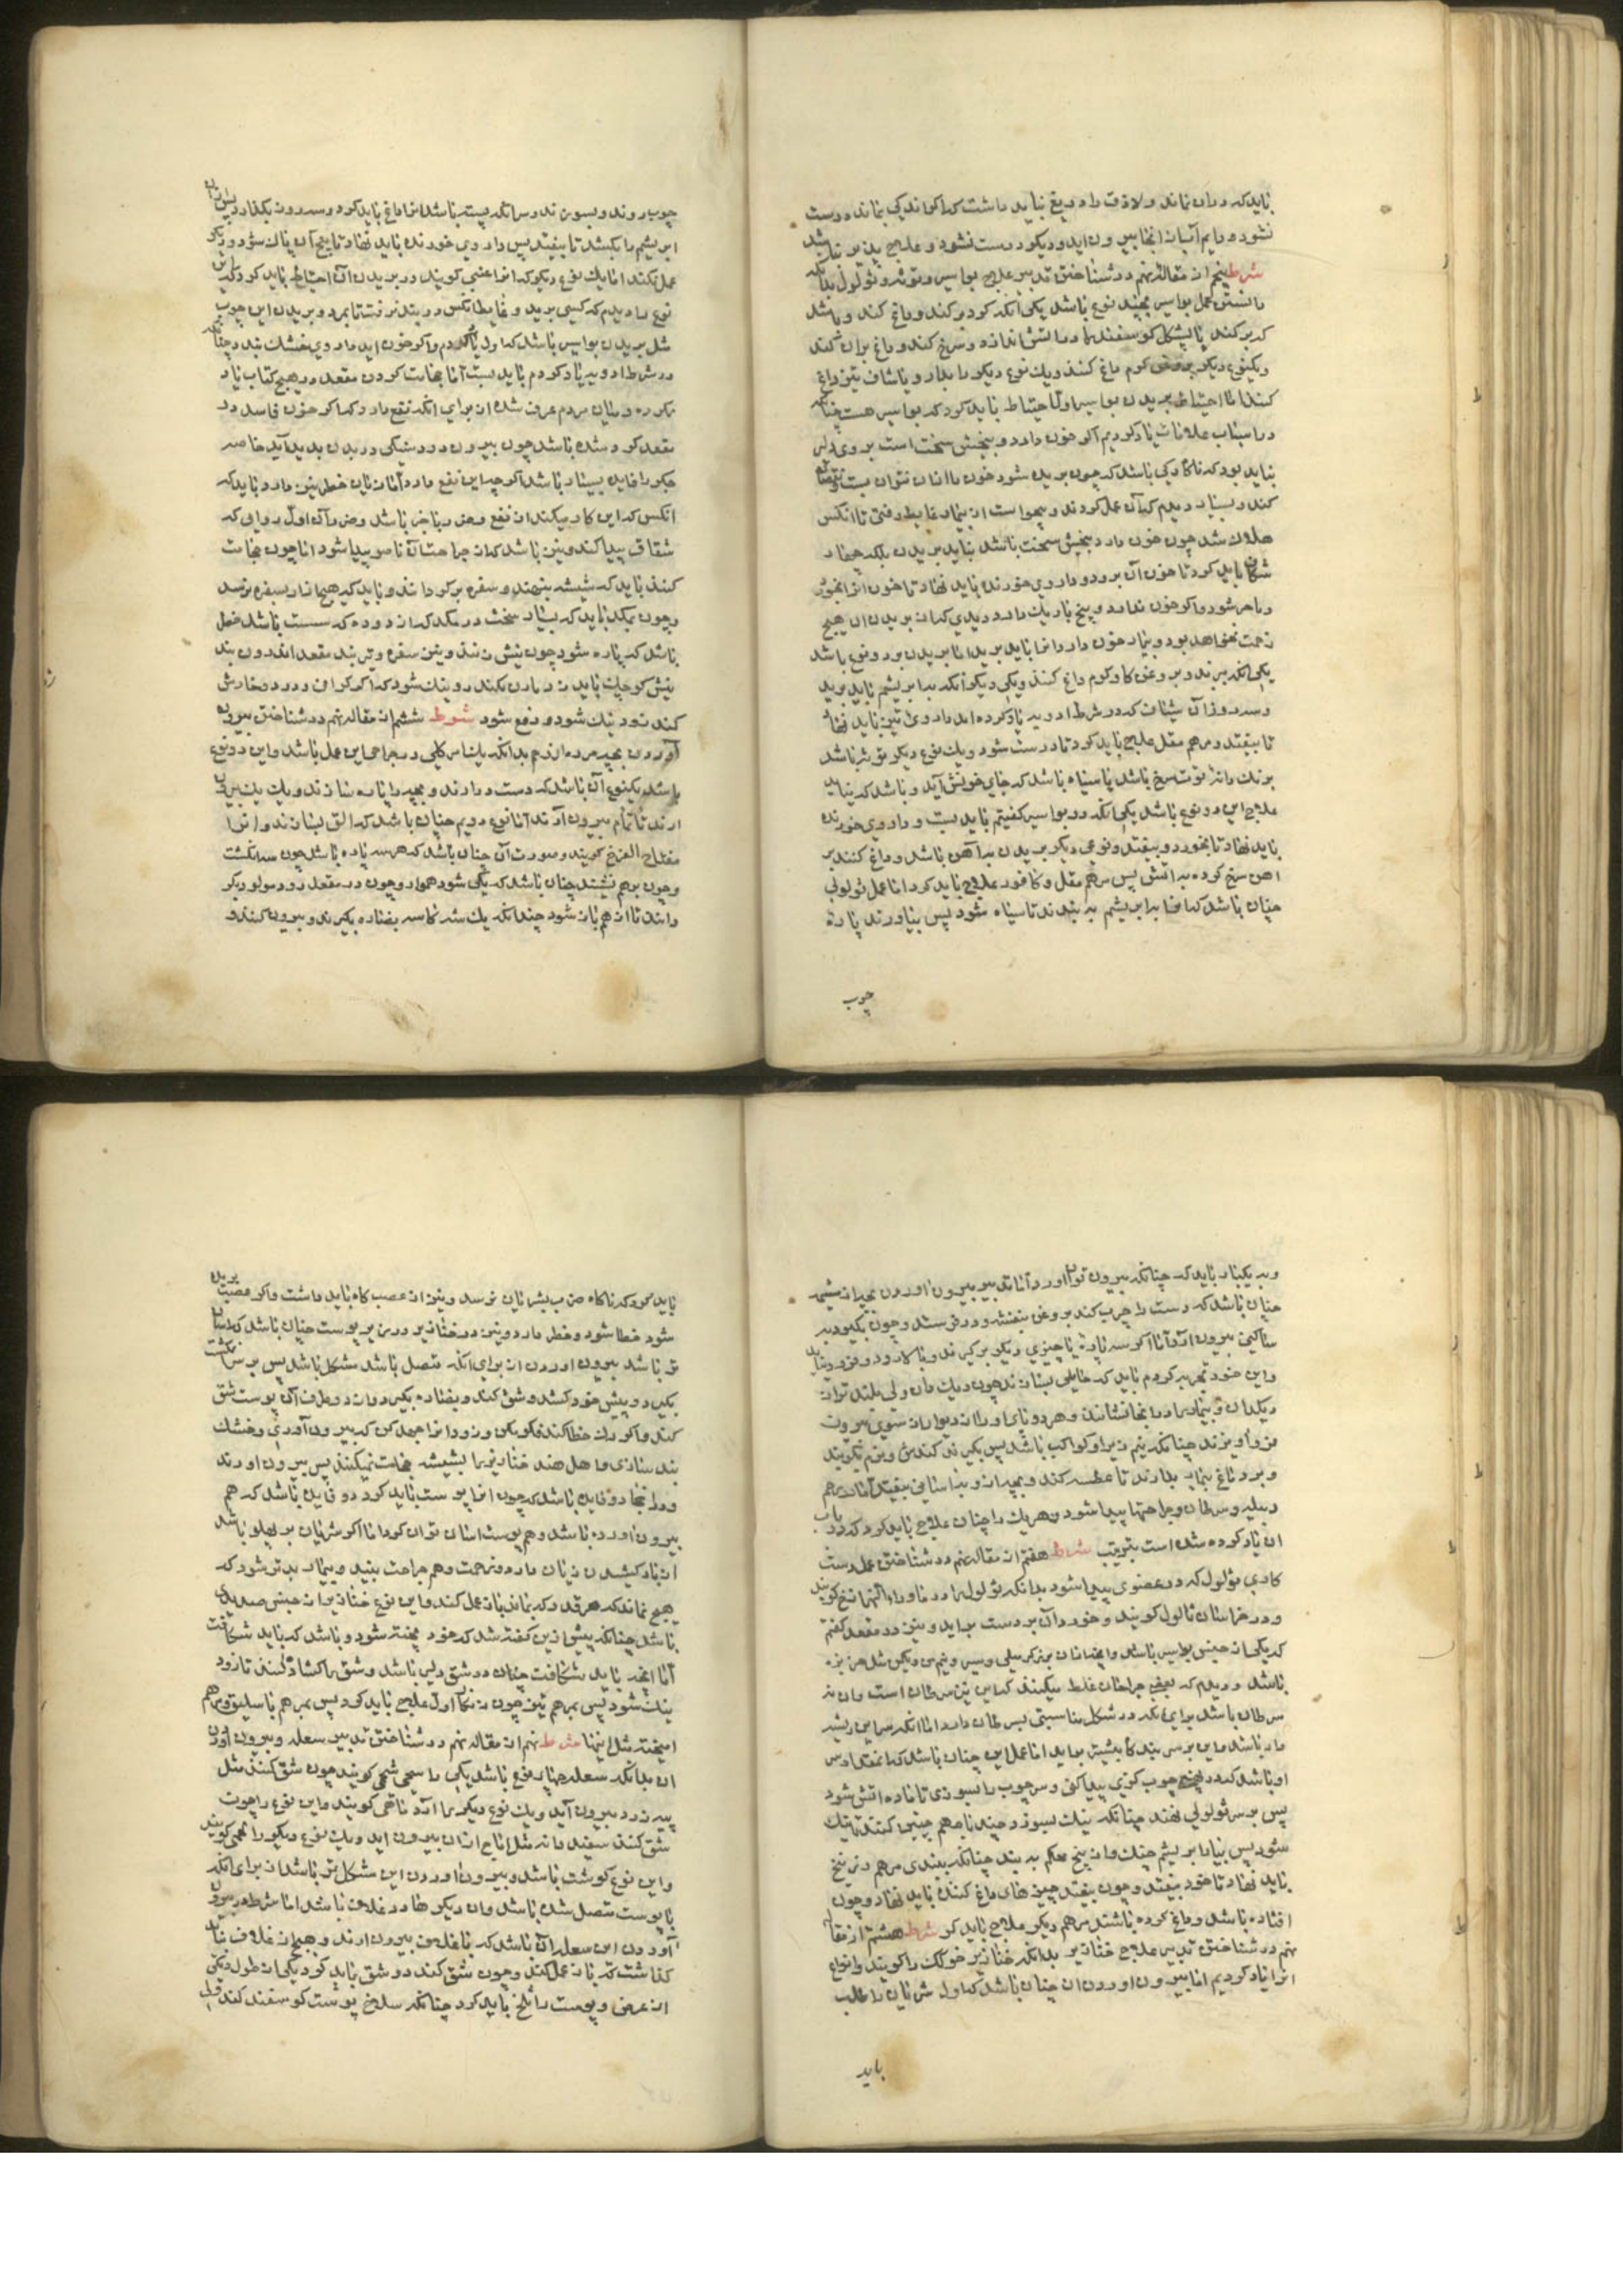 باید که در ان نماند و لا وقت را دریغ نباید داشت که اگر اندکی بماند درست
نشود و دایم آنجا بیرون اید و دیگر درست نشود و علاج پذیر نباشد
شرط پنجم از مقالۀ نهم در شناختن تدبیر علاج بواسیر و توثه و ثولول بدانکه
دانستن عمل بواسیر بچند نوع باشد یکی آنکه کرد بر کند و داغ کند و باشد
که بر کند یا پشکل کوسفند را در اتش اندازد و سرخ کند و داغ بران کند
و یکنوع دیکر بروغن کرم داغ کنند و یك نوع دیکر را بدارو یا شاف تیز داغ
کنند اما احتیاط بریدن بواسیر اولا احتیاط باید کرد که بواسیر هست چنانکه
در اسباب علامات یاد کردیم اکر خون دارد و بیخش سخت است بروی دلیر
نباید بود که ناکاه رکی باشد که چون بریده شود خون باانان نتوان بست
کند و بسیار دیدم که آن عمل کردند و
هلاك شد چون خون دارد بیخش سخت باشد نباید بریدن بلکه چهار
شکاف باید کرد تا خون آن برود و داروی خورنده باید نهاد تا خون انرا بخورد
و ماهر شود و اکر خون ندارد و بیخ باریك دارد دیدی که از بریدن ان هیچ
زحمت نخواهد بود و بسیار خون دارد انرا باید برید اما بریدن بر دو نوع باشد
یکی انکه ببرند و بروغن کاو کرم داغ کنند و یکی دیکر انکه بابریشم باید برید
و سه روز ان شیاف که در شرط ادویه یاد کرده ام داروی تیز باید نهاد
تا بیفتد و مرهم مقل علاج باید کرد تا درست شود و یك نوع دیکر توثه باشد
برنك دانۀ توت سرخ باشد یا سیاه باشد که جای خونش آید و باشد که نیاید
علاج این دو نوع باشد یکی انکه در بواسیر کفتیم باید بست و داروی خورنده
باید نهاد تا بخورد و بیفتد و نوعی دیکر بریدن بدآهن باشد و داغ کنند بر
اهن سرخ کرده به اتش پس مرهم مقل و کافور علاج باید کرد اما عمل ثولولی
چنان باشد که انرا بابریشم بر بندند تا سیاه شود پس بیاورند پارۀ
چوب
چوب روند و بسوزند و سه انکه بسته باشد انرا داغ باید کرد و سه روز بکذارد پس ازان
ابریشم را بکشد تا بیفتد پس داروی خورنده باید نهاد تا بیخ آن پاك شود و دیکر
عمل نکند اما یك نوع دیکر که انرا عنبی کویند در بریدن آن احتیاط باید کرد که این
نوع را دیدم که کسی برید و غایط انکس در بند نرفت تا بمرد و بریدن این چوب
مثل بریدن بواسیر باشد که اول یاد کردم و اکر خون اید داروی خشك بند چنانکه
در شرط ادویه یاد کردم باید بست اما حجامت کردن مقعد در هیچ کتاب یاد
نکرده و میان مردم عرف شده از برای انکه نفع دارد که اکر خون فاسد در
مقعد کرد شده باشد چون بیرون رود سبکی در بدن پدید آید خاصه
جکر را فایده بسیار باشد اکر چه این نفع دارد اما زیان خطر نیز دارد و باید که
انکس که این کار میکند از نفع و ضر با خبر باشد و ضر آن اول بدانی که
شقاق پیدا کند و نیز باشد که از جراحت آن ناصور پیدا شود اما چون حجامت
کنند باید که شیشه بنهند و سفره بر کردانند و باید که هیچ ازار بسفره نرسد
و چون بمکد باید که بسیار سخت در مکد که از دوده که سست باشد خطر
باشد که پاره شود چون نیش زنند و نیز سفره و تر بند مقعد اندرون بند
نیش کوچك باید زد یا زدن نکند زود نیك شود که اکر کران و درد و خارش
کند زود نیك شود و دفع شود شرط ششم از مقاله نهم در شناختن بیرون
آوردن بچه مرده از رحم بدانکه یك باس کلی در جراحی این عمل باشد و این دو نوع
باشد یکنوع آن باشد که دست درارند و بچه را پاره سازند و یك یك بیرون
ارند تا تمام بیرون ارند اما نوع دویم چنان باشد که التی بسازند و انرا
مفتاح الفرج کویند و صورت آن چنان باشد که هر سه پاره باشد چون سه انکشت
و چون برهم نشیند چنان باشد که یکی شود هموار و چون در مقعد رود مولود بکر
دانند تا از هم باز شود چندانکه یك سر کاسه بفناره بکیرند و بیرون کنند و
و به یکبار باید که چنانکه بیرون توان اورد اما تدبیر بیرون اوردن بچه از مشیمه
چنان باشد که دست را چرب کند بروغن بنفشه و در فرستد و چون بکیرد به
ساکنی بیرون ارد اما اکر سه پاره یا چیزی دیکر برکیرند و باکارد و
واین خود تجربه کردم باید که حایلی بسازند چون دیك دان ولی بلند تر از
دیکدان و بیمار را در انجا نشانند و هر دو پای او را از دیوار از سوی بیرون
فرو اویزند چنانکه نیم زیر او کواکب باشد پس بکیرند کندش و نرم بکوبند
و برد ماغ بنهاید بدارند تا عطسه کند و بچه از و بداسانی بیفتد اما در رحم
دبیله و سرطان و جراحتها پیدا شود و هر یك را چنان علاج باید کرد که در باب
ان یاد کرده شده است بترتیب شرط هفتم از مقاله نهم در شناختن عمل دست
کاری ثولول که در عضوی پیدا شود بدانکه ثولول را در ماوراء النهر ازخ کویند
و در خراسان ثالول کویند و خورد آن بر دست براید و نیز در مقعد کفتم
که یکی از جنس بواسیر باشد
باشد و دیدم که بعضی جراحان غلط میکنند که این نیز سرطان است و ان نه
سرطان باشد برای انکه در شکل مناسبتی بسرطان دارد اما انکه سر این ریشه
دار باشد و این بر سر بند کاه بیشتر براید اما عمل این چنان باشد که بنقد ارس
او باشد که در چوب کزی پیدا کنی و سر چوب را بسوزی تا ماده اتش شود
پس بر سر ثولولی نهند چنانکه نیك بسوزد و چند بار هم چنین کنند تا نیك
شود پس بیار ابریشم چنك و از بیخ محکم به بند چنانکه ببندی مرهم زرنیخ
باید نهاد تا خود بیفتد و چون بیفتد چیزهای داغ کننده باید نهاد و چون
افتاده باشد و داغ کرده باشند مرهم دیکر علاج باید کر شرط هشتم از مقاله
نهم در شناختن تدبیر علاج خنازیر بدانکه خنازیر خوکك را کویند و انواع
انرا یاد کردیم اما بیرون اوردن ان چنان باشد که اول شریان را طلب
باید
باید کرد که ناکاه ضرب بشریان نرسد و نیز از عصب کاه باید داشت و اکر عصب بریده
شود خطا شود و خطر دارد و نیز در خنازیر در زیر پوست چنان باشد که اسان
تر باشد بیرون اوردن از برای انکه متصل باشد مشکل باشد پس بر سر انکشت
بکیرد و پیش خود کشد و شق کند و بفناره بکیرد و از دو طرف آن پوست شق
کند و اکر رك خطا کند فکر بکن و زود انرا جهد کن که بیرون آوری و خشك
بند سازی و اهل هند خنازیر را بشیشه حجامت میکنند پس بیرون اورند
و در انجا دو فایده باشد که چون انرا پوست باید کرد دو فایده باشد که هم
بیرون اورده باشد و هم پوست اسان توان کرد اما اکر شریان بر پهلو باشد
ان باز کشیدن زیان دارد و زحمت و هم جراحت ببیند و بیمار بدتر شود که
هیچ نماند که هر قدر که بماند باز عمل کند و این نوع خنازیر از جنس صدید
باشد چنانکه پیش ازین کفته شد که خود پخته شود و باشد که باید شکافت
اما انچه باید شکافت چنان در شق دلیر باشد و شق را کشاده کنند تا زود
نیك شود پس بمرهم تیز چون زنکار اول علاج باید کرد پس بمرهم باسلیقون مرهم
امیخته مثل اینها شرط نهم از مقاله نهم در شناختن تدبیر سعله و بیرون اوردن
ان بدانکه سعله چهار نوع باشد یکی را شحمی کویند چون شق کنند مثل
پیه زرد بیرون آید و یك نوع دیکر را ارد ناقحی کویند و این نوع را چون
شق کنند سفید دانه مثل اماج ازان بیرون اید و یك نوع دیکر را لحمی کویند
و این نوع کوشت باشد و بیرون اوردن این مشکل تر باشد از برای انکه
با پوست متصل شده باشد و ان دیکرها در غلاف باشد اما شرط در بیرون
آوردن این سعله آن باشد که با غلاف بیرون ارند و هیچ از غلاف نباید
کذاشت که باز عمل کند و چون شق کند دو شق باید کرد یکی از طول و یکی
از عرض و پوست را سلخ باید کرد چنانکه سلاخ پوست کوسفند کند